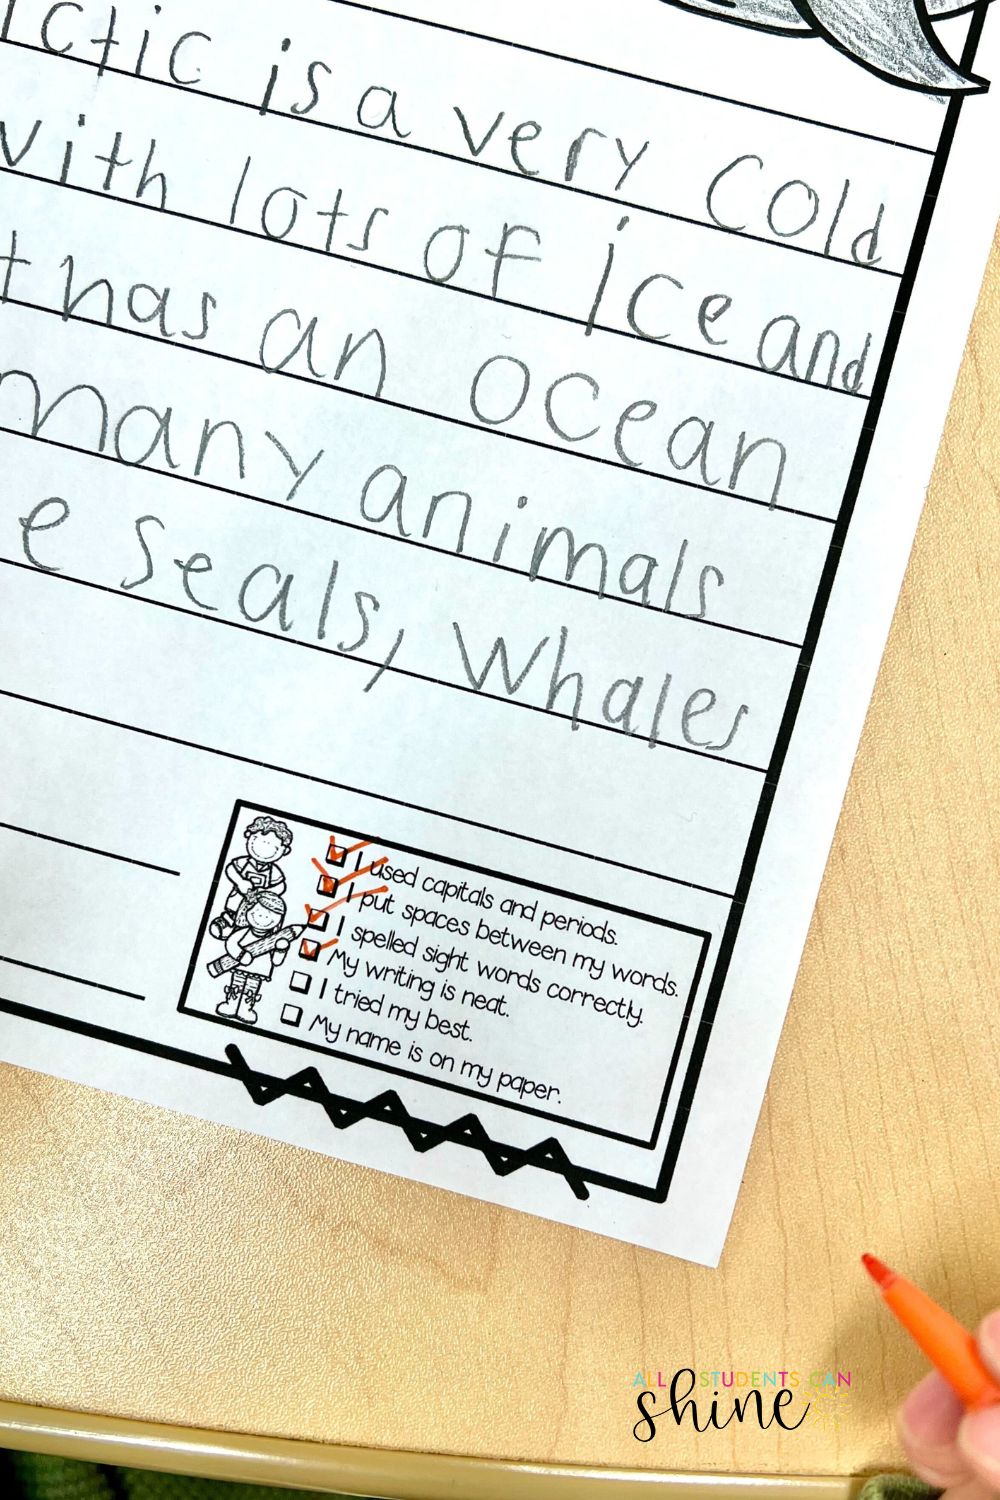 ctic is a very cold
with lots of ice and
t has an ocean
many animals
e seals, whales
I used capitals and periods.
I put spaces between my words.
I spelled sight words correctly.
My writing is neat.
I tried my best.
My name is on my paper.
ALL STUDENTS CAN
shine